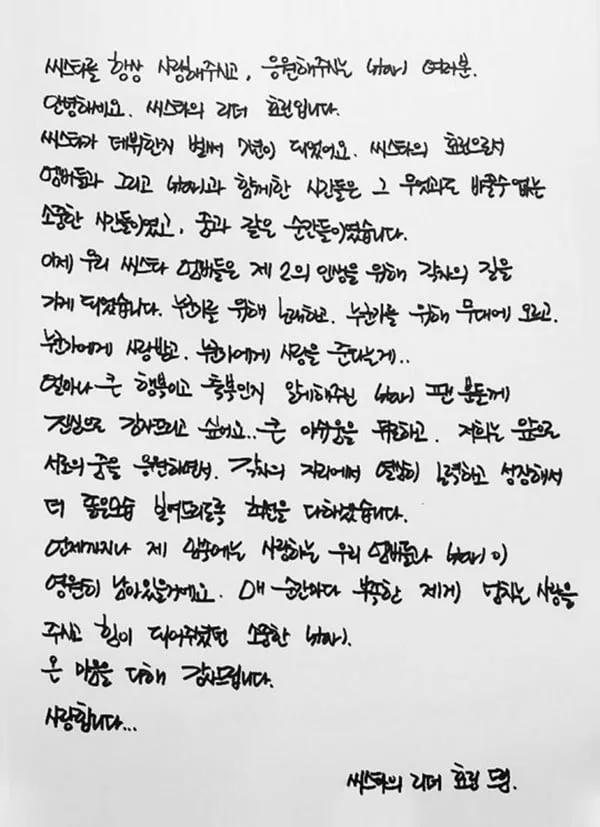 씨스타를 항상 사랑해주시고, 응원해주시는 star1 여러분.
안녕하세요. 씨스타의 리더 효린입니다.
씨스타가 데뷔한지 벌써 7년이 되었어요. 씨스타의 효린으로서
멤버들과 그리고 star1과 함께한 시간들은 그 무엇과도 바꿀수 없는
소중한 시간들이였고, 꿈과 같은 순간들이였습니다.
이제 우리 씨스타 멤버들은 제 2의 인생을 위해 각자의 길을
가게 되었습니다. 누군가를 위해 노래하고. 누군가를 위해 무대에 오르고.
누군가에게 사랑받고. 누군가에게 사랑을 준다는게..
얼마나 큰 행복이고 축복인지 알게해주신 star1 팬 분들께
진심으로 감사드리고 싶어요.. 큰 아쉬움을 뒤로하고. 저희는 앞으로
서로의 꿈을 응원하면서. 각자의 자리에서 열심히 노력하고 성장해서
더 좋은모습 보여드리도록 최선을 다하겠습니다.
언제까지나 제 맘속에는 사랑하는 우리 멤버들과 star1이
영원히 남아있을거예요. 매 순간마다 부족한 제게 넘치는 사랑을
주시고 힘이 되어주셨던 소중한 star1.
온 마음을 다해 감사드립니다.
사랑합니다...
씨스타의 리더 효린 드림.